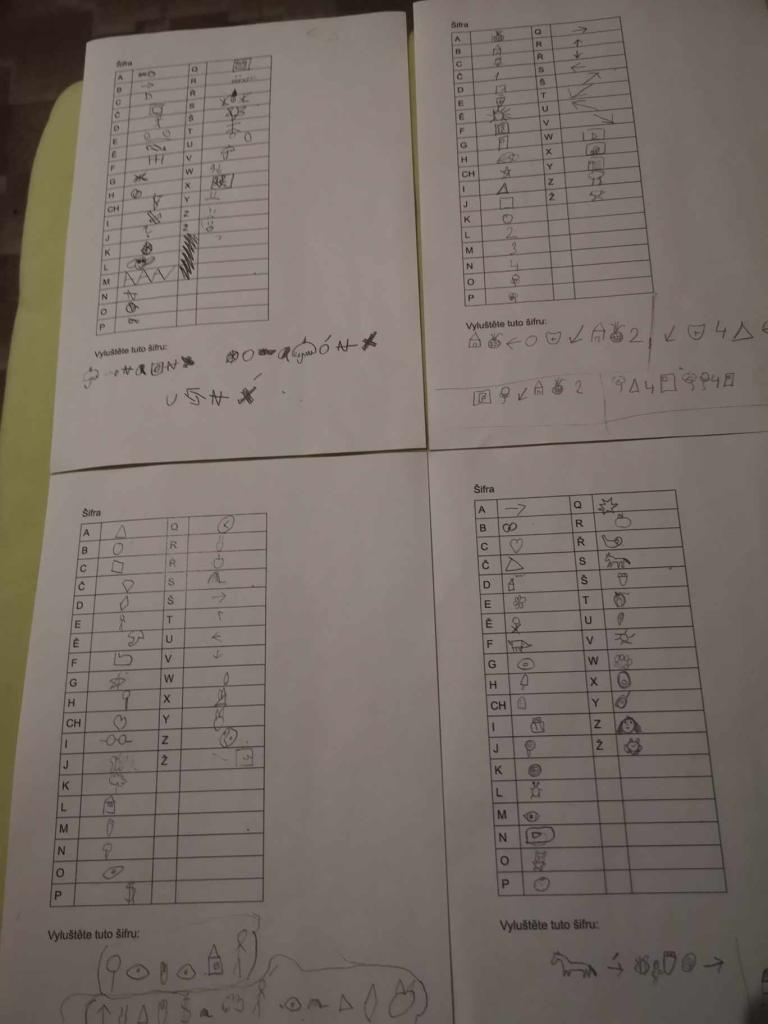 Šifra
A Q
B R
C Ř
Č S
D Š
E T
Ě U
F V
G W
H X
CH Y
I Z
J Ž
K
L
M
N
O
P
Vyluštěte tuto šifru:
Šifra
A Q
B R
C Ř
Č S
D Š
E T
Ě U
F V
G W
H X
CH Y
I Z
J Ž
K
L 2
M 3
N 4
O
P
Vyluštěte tuto šifru:
2, 4
2 4 4
Šifra
A Q
B R
C Ř
Č S
D Š
E T
Ě U
F V
G W
H X
CH Y
I Z
J Ž
K
L
M
N
O
P
Vyluštěte tuto šifru:
Šifra
A Q
B R
C Ř
Č S
D Š
E T
Ě U
F V
G W
H X
CH Y
I Z
J Ž
K
L
M
N
O
P
Vyluštěte tuto šifru: